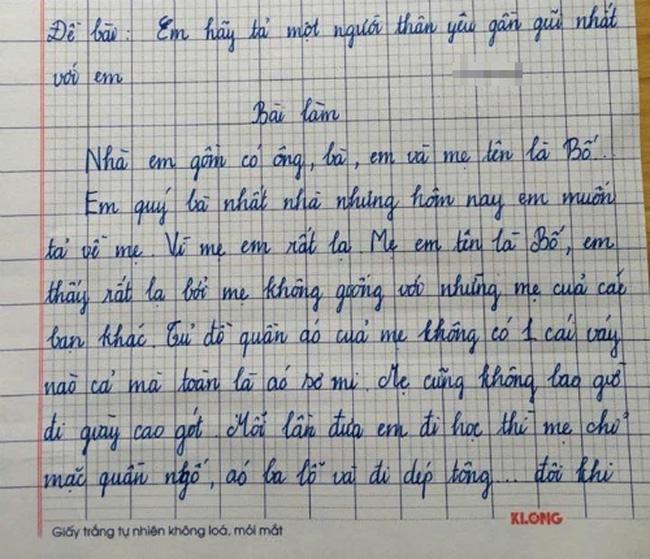 Đề bài: Em hãy tả một người thân yêu gần gũi nhất
với em
Bài làm
Nhà em gồm có ông, bà, em và mẹ tên là Bố.
Em quý bà nhất nhà nhưng hôm nay em muốn
tả về mẹ. Vì mẹ em rất lạ. Mẹ em tên là Bố, em
thấy rất lạ bởi mẹ không giống với những mẹ của các
bạn khác. Tủ đồ quần áo của mẹ không có 1 cái váy
nào cả mà toàn là áo sơ mi. Mẹ cũng không bao giờ
đi giày cao gót. Mỗi lần đưa em đi học thì mẹ chỉ
mặc quần ngố, áo ba lỗ và đi dép tông... đôi khi
KLONG
Giấy trắng tự nhiên không loá, mỏi mắt